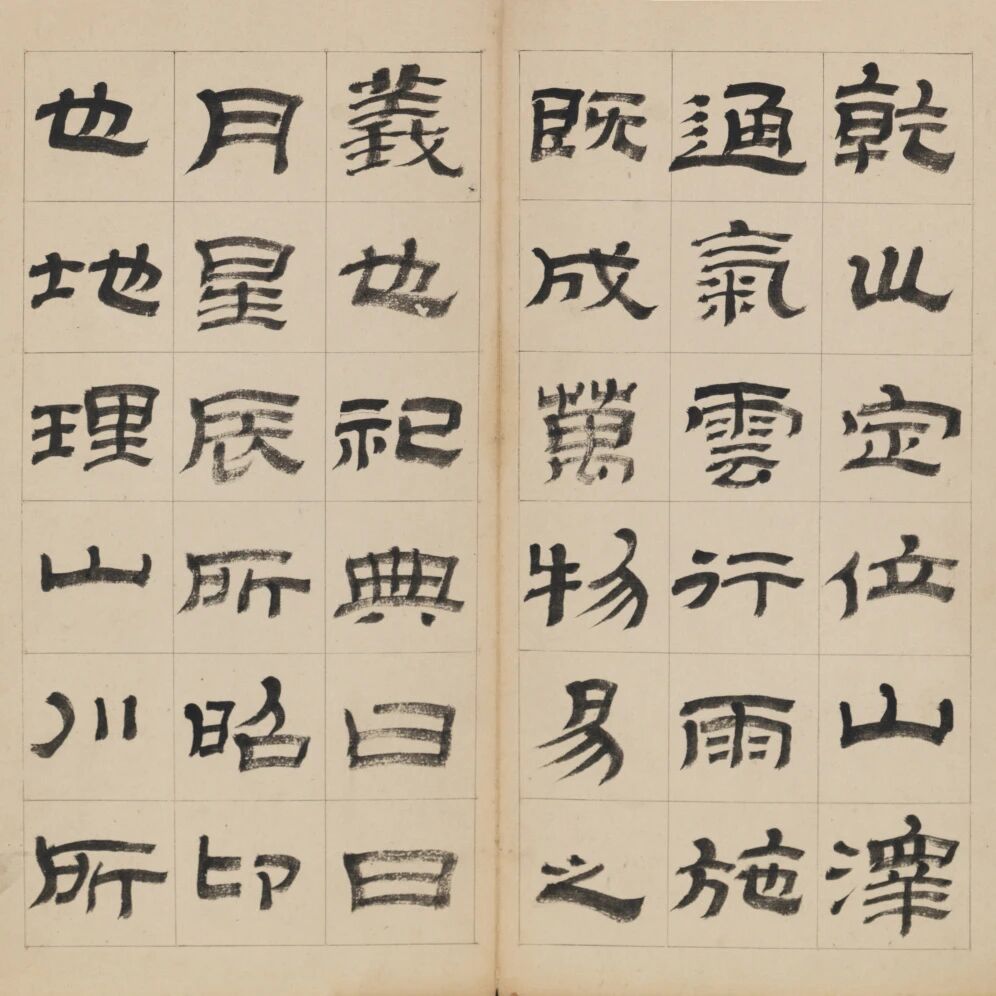 乾巛定位山澤
通氣雲行雨施
既成萬物易之
義也祀典曰日
月星辰所昭卬
也地理山川所